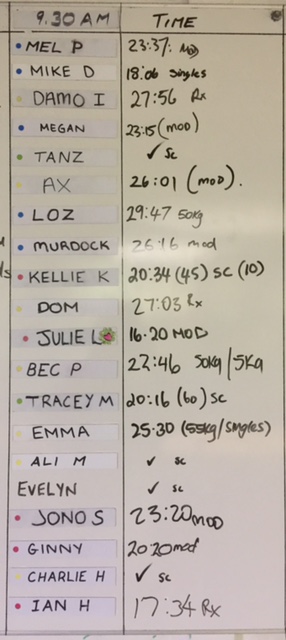 9.30 AM TIME
MEL P 23:37: MOD
MIKE D 18:06 singles
DAMO I 27:56 Rx
MEGAN 23:15 (MOD)
TANZ ✓ Sc
AX 26:01 (MOD).
LOZ 29:47 50kg
MURDOCK 26:16 mod
KELLIE K 20:34 (45) SC (10)
DOM 27:03 Rx
JULIE L 16.20 MOD
BEC P 22:46 50kg/5kg
TRACEY M 20:16 (60) SC
EMMA 25:30 (55kg/singles)
ALI M ✓ sc
EVELYN ✓ sc
JONO S 23:20 MOD
GINNY 20:20 mod
CHARLIE H ✓ sc
IAN H 17:34 Rx